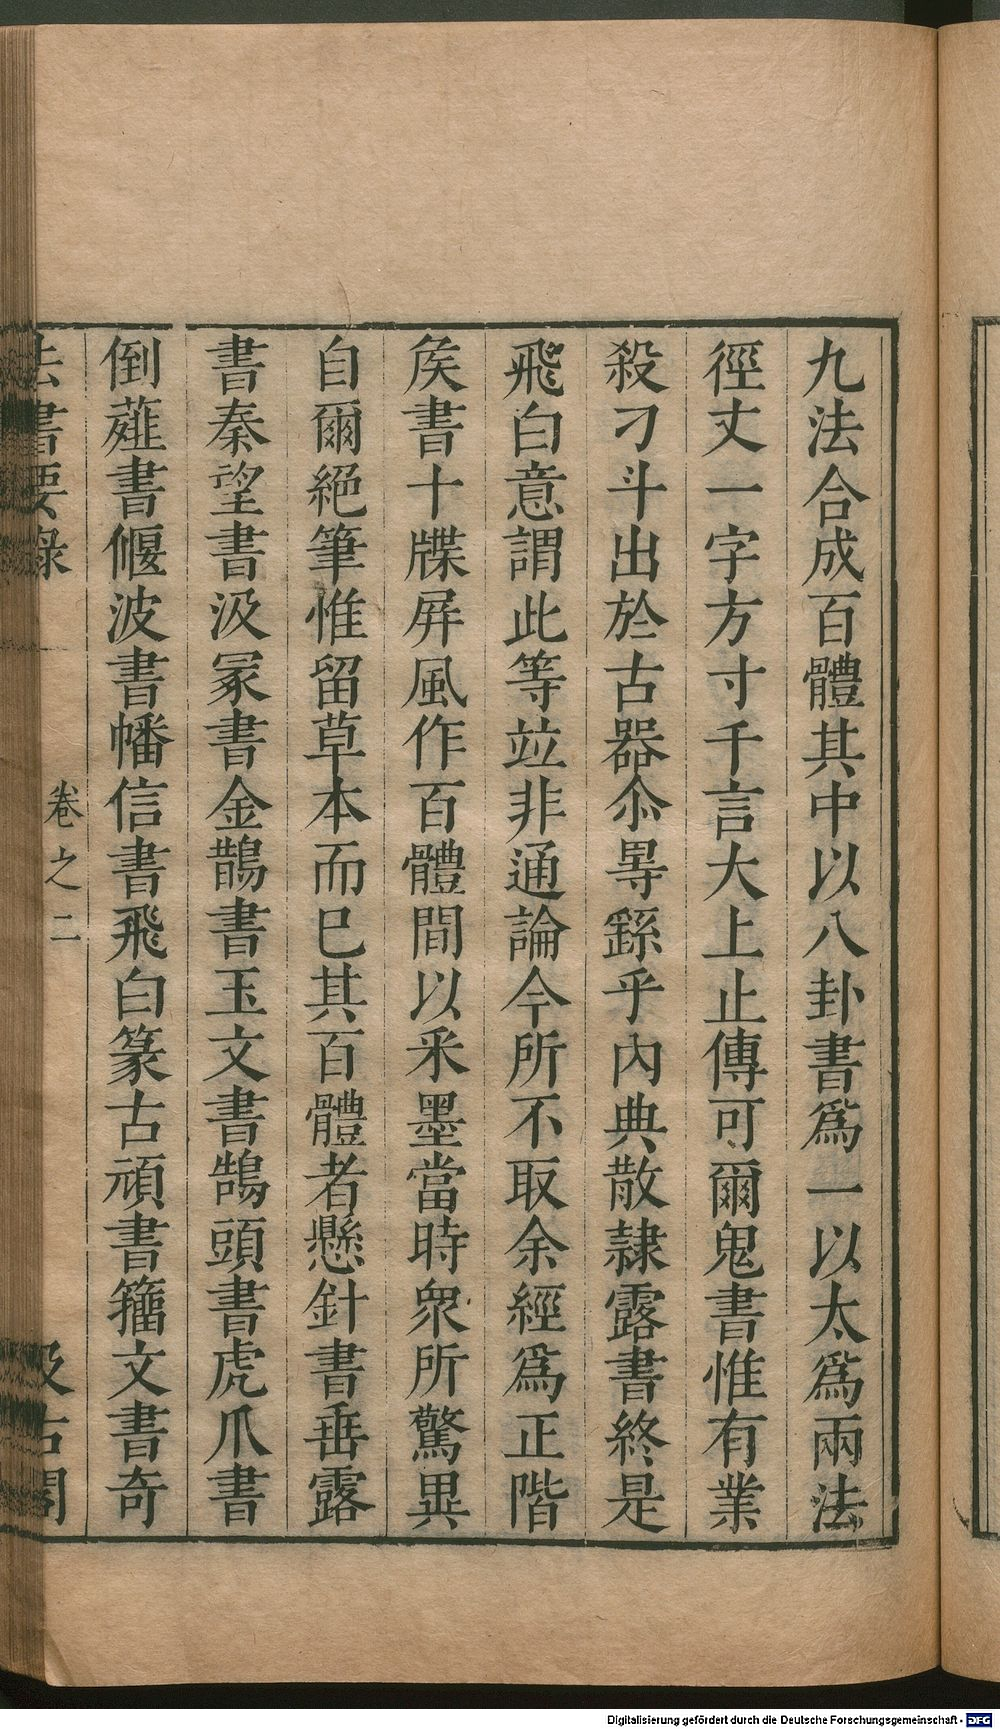 九法合成百體其中以八卦書爲一以太爲兩法
徑丈一字方寸千言大上止傳可爾鬼書惟有業
殺刁斗出於古器尒㝵繇乎內典散隷露書終是
飛白意謂此等竝非通論今所不取余經爲正階
矦書十牒屛風作百體間以釆墨當時衆所驚異
自爾絕筆惟留草本而巳其百體者懸針書垂露
書秦望書汲冢書金鵲書玉文書鵠頭書虎爪書
倒薤書偃波書幡信書飛白篆古頑書籒文書奇
法書要錄 卷之二 汲古閣
Digitalisierung gefördert durch die Deutsche Forschungsgemeinschaft - DFG